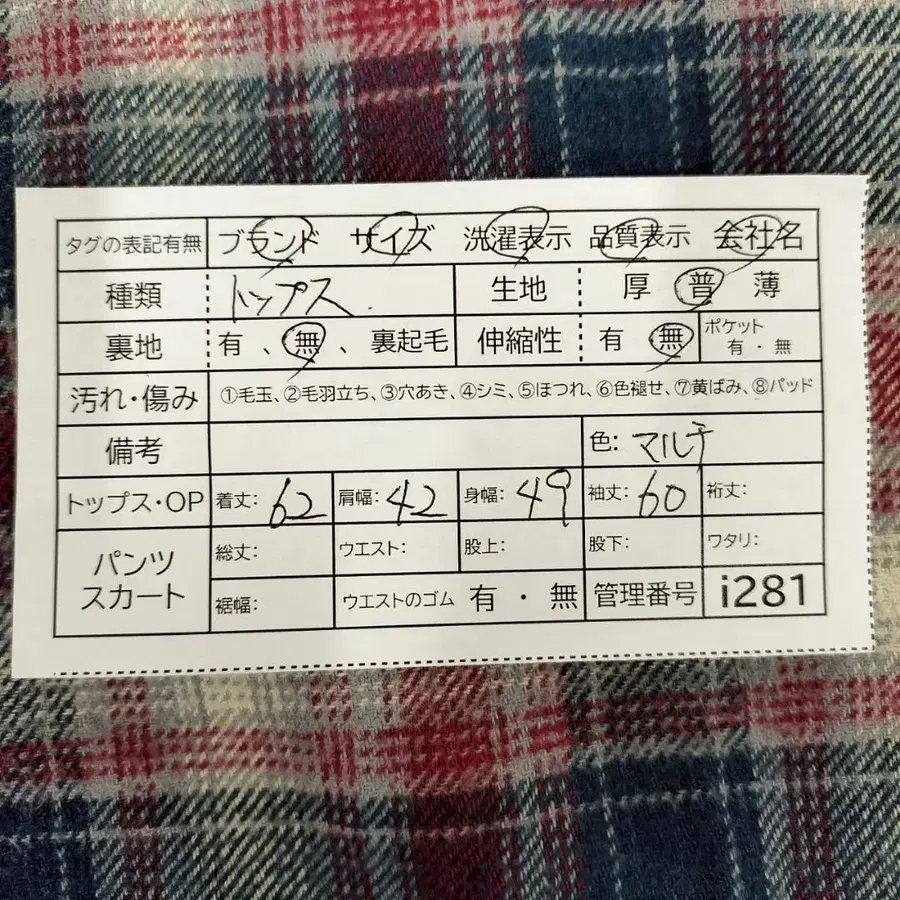 タグの表記有無 ブランド サイズ 洗濯表示 品質表示 会社名
種類 トップス 生地 厚 普 薄
裏地 有 、 無 、 裏起毛 伸縮性 有 無 ポケット 有 ・ 無
汚れ・傷み ①毛玉、②毛羽立ち、③穴あき、④シミ、⑤ほつれ、⑥色褪せ、⑦黄ばみ、⑧パッド
備考 色: マルチ
トップス・OP 着丈: 62 肩幅: 42 身幅: 49 袖丈: 60 裄丈:
パンツ スカート 総丈: ウエスト: 股上: 股下: ワタリ:
裾幅: ウエストのゴム 有 ・ 無 管理番号 i281